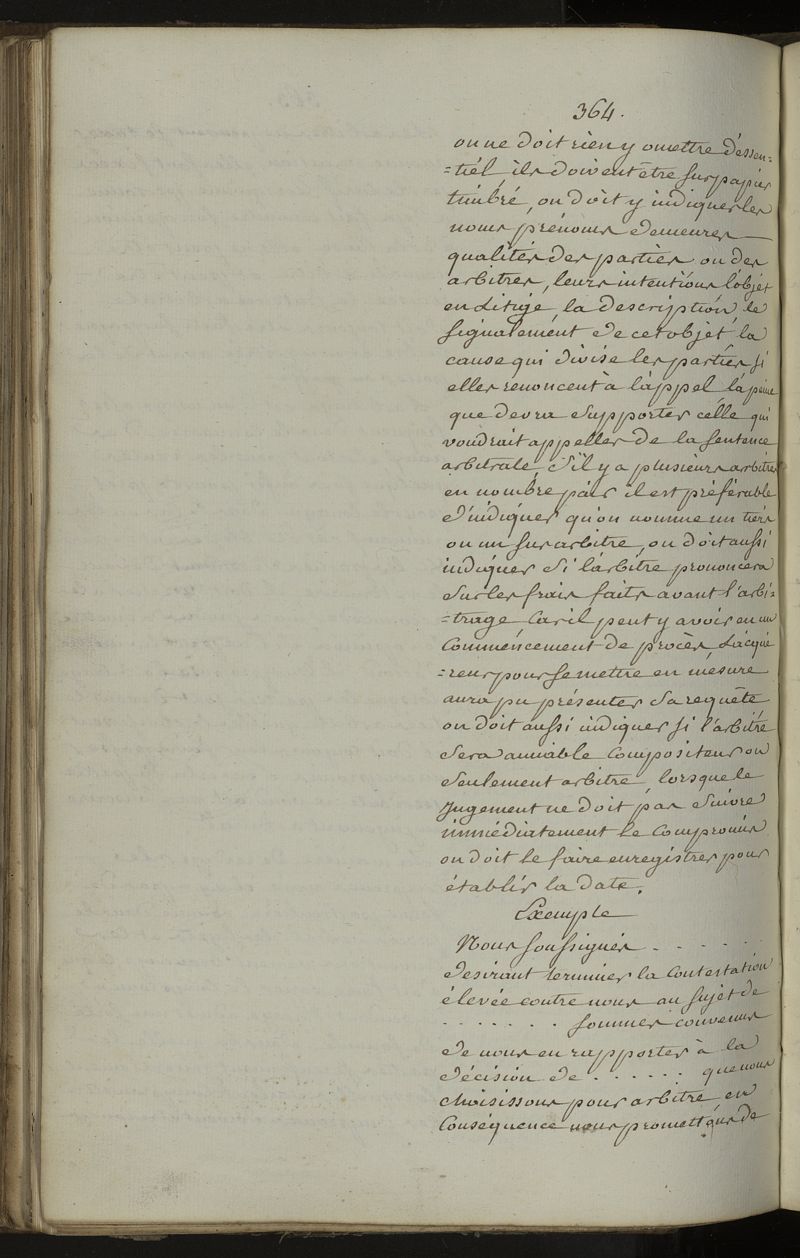 364.
on ne doit rien y omettre d'éssen=
=tiél, ils doivent être sur papier
timbré, on doit y indiquer les
noms prénoms demeures
qualités des parties ou des
arbitres, leurs intentions l'objet
en Litige, la description, le
signalement de cet objet, la
cause qui divise les parties, si
elles renoncent à l'appel, la peine
que devra supporter célle qui
voudrait appeller de la sentence
arbitrale, s'il y a plusieurs arbitres
en nombre pair il est préférable
d'indiquer qu'on nomme un tiers
ou un surarbitre, on doit aussi
indiquer si l'arbitre prononcera
sur les frais faits avant l'arbi=
=trage, Car il peut y avoir eu un
Commencement de procès, L'acqué
=reur pour se mettre en mesure
aura pu présenter sa requête
on doit aussi indiquer si l'arbitre
sera amiable Compositeur ou
seulement arbitre, lorsque le
Jugement ne doit pas suivre
immédiatement le Compromis
on doit le faire enregistrer pour
établir la date.
Exemple
Nous soussignés . . . . . .
désirant terminer la Contestation
élevée contre nous au sujet de
. . . . . . . sommes convenus
de nous en rapporter à la
décision de . . . . . . que nous
choisissons pour arbitre, en
Conséquence nous promettons de